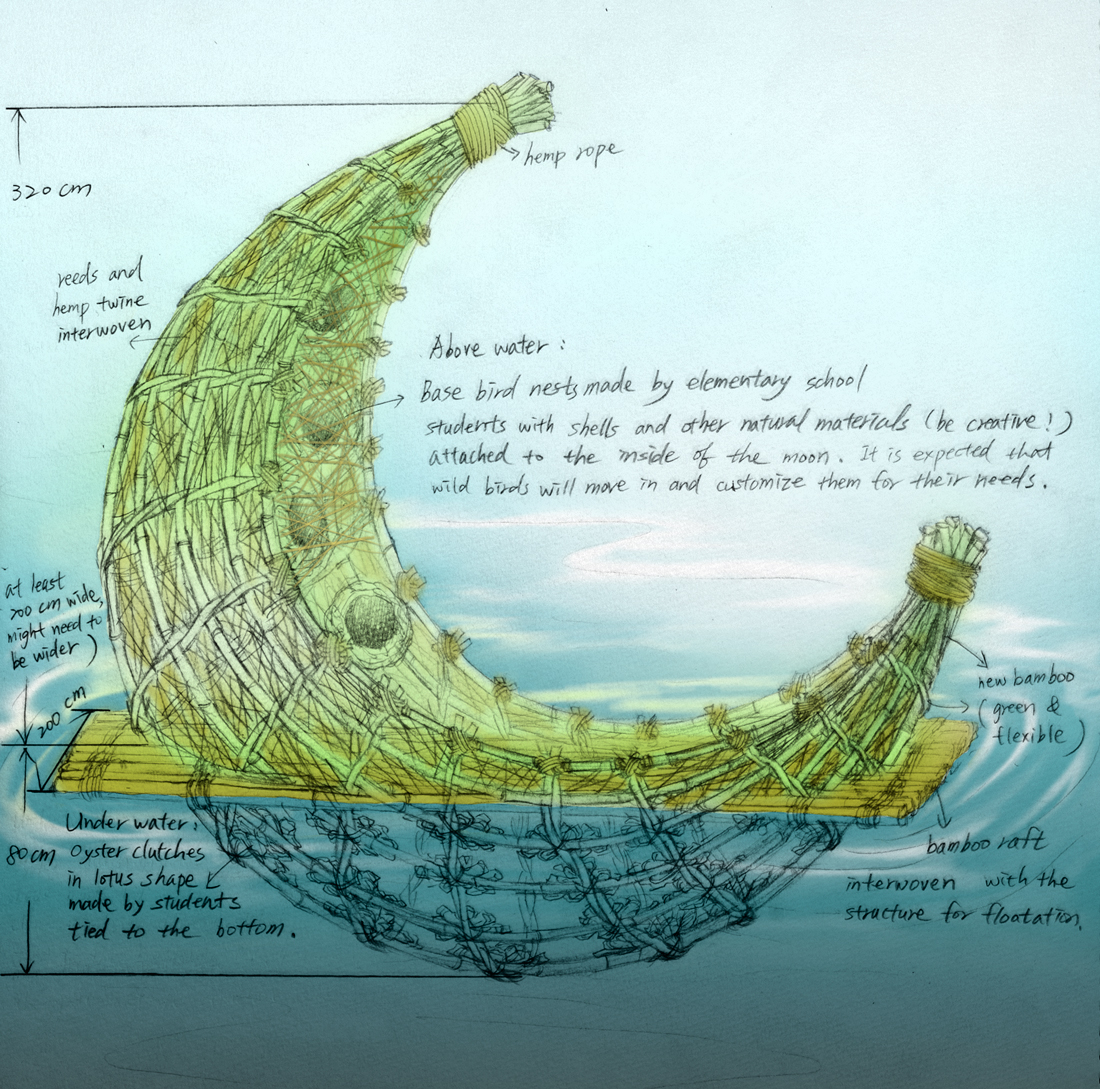 320 cm
hemp rope
reeds and
hemp twine
interwoven
Above water :
Base bird nests made by elementary school
students with shells and other natural materials (be creative!)
attached to the inside of the moon. It is expected that
wild birds will move in and customize them for their needs.
at least
200 cm wide,
might need to
be wider )
200 cm
new bamboo
( green &
flexible )
Under water:
80 cm
Oyster clutches
in lotus shape
made by students
tied to the bottom.
bamboo raft
interwoven with the
structure for floatation.